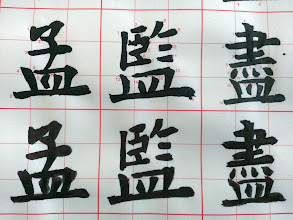 孟監盡
孟監盡